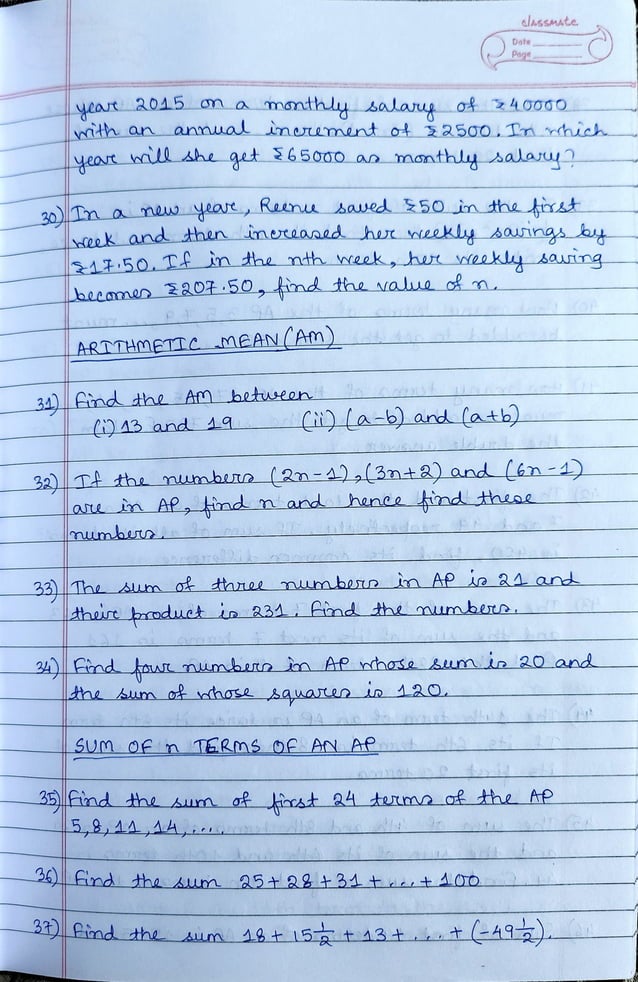 classmate
Date
Page
year 2015 on a monthly salary of ₹40000
with an annual increment of ₹2500. In which
year will she get ₹65000 as monthly salary?
30) In a new year, Reenu saved ₹50 in the first
week and then increased her weekly savings by
₹17.50. If in the nth week, her weekly saving
becomes ₹207.50, find the value of n.
ARITHMETIC MEAN (AM)
31) Find the AM between
(i) 13 and 19 (ii) (a-b) and (a+b)
32) If the numbers (2n-1), (3n+2) and (6n-1)
are in AP, find n and hence find these
numbers.
33) The sum of three numbers in AP is 21 and
their product is 231. Find the numbers.
34) Find four numbers in AP whose sum is 20 and
the sum of whose squares is 120.
SUM OF n TERMS OF AN AP
35) Find the sum of first 24 terms of the AP
5, 8, 11, 14, ....
36) Find the sum 25 + 28 + 31 + ... + 100
37) Find the sum 18 + 15 1/2 + 13 + ... + (-49 1/2).